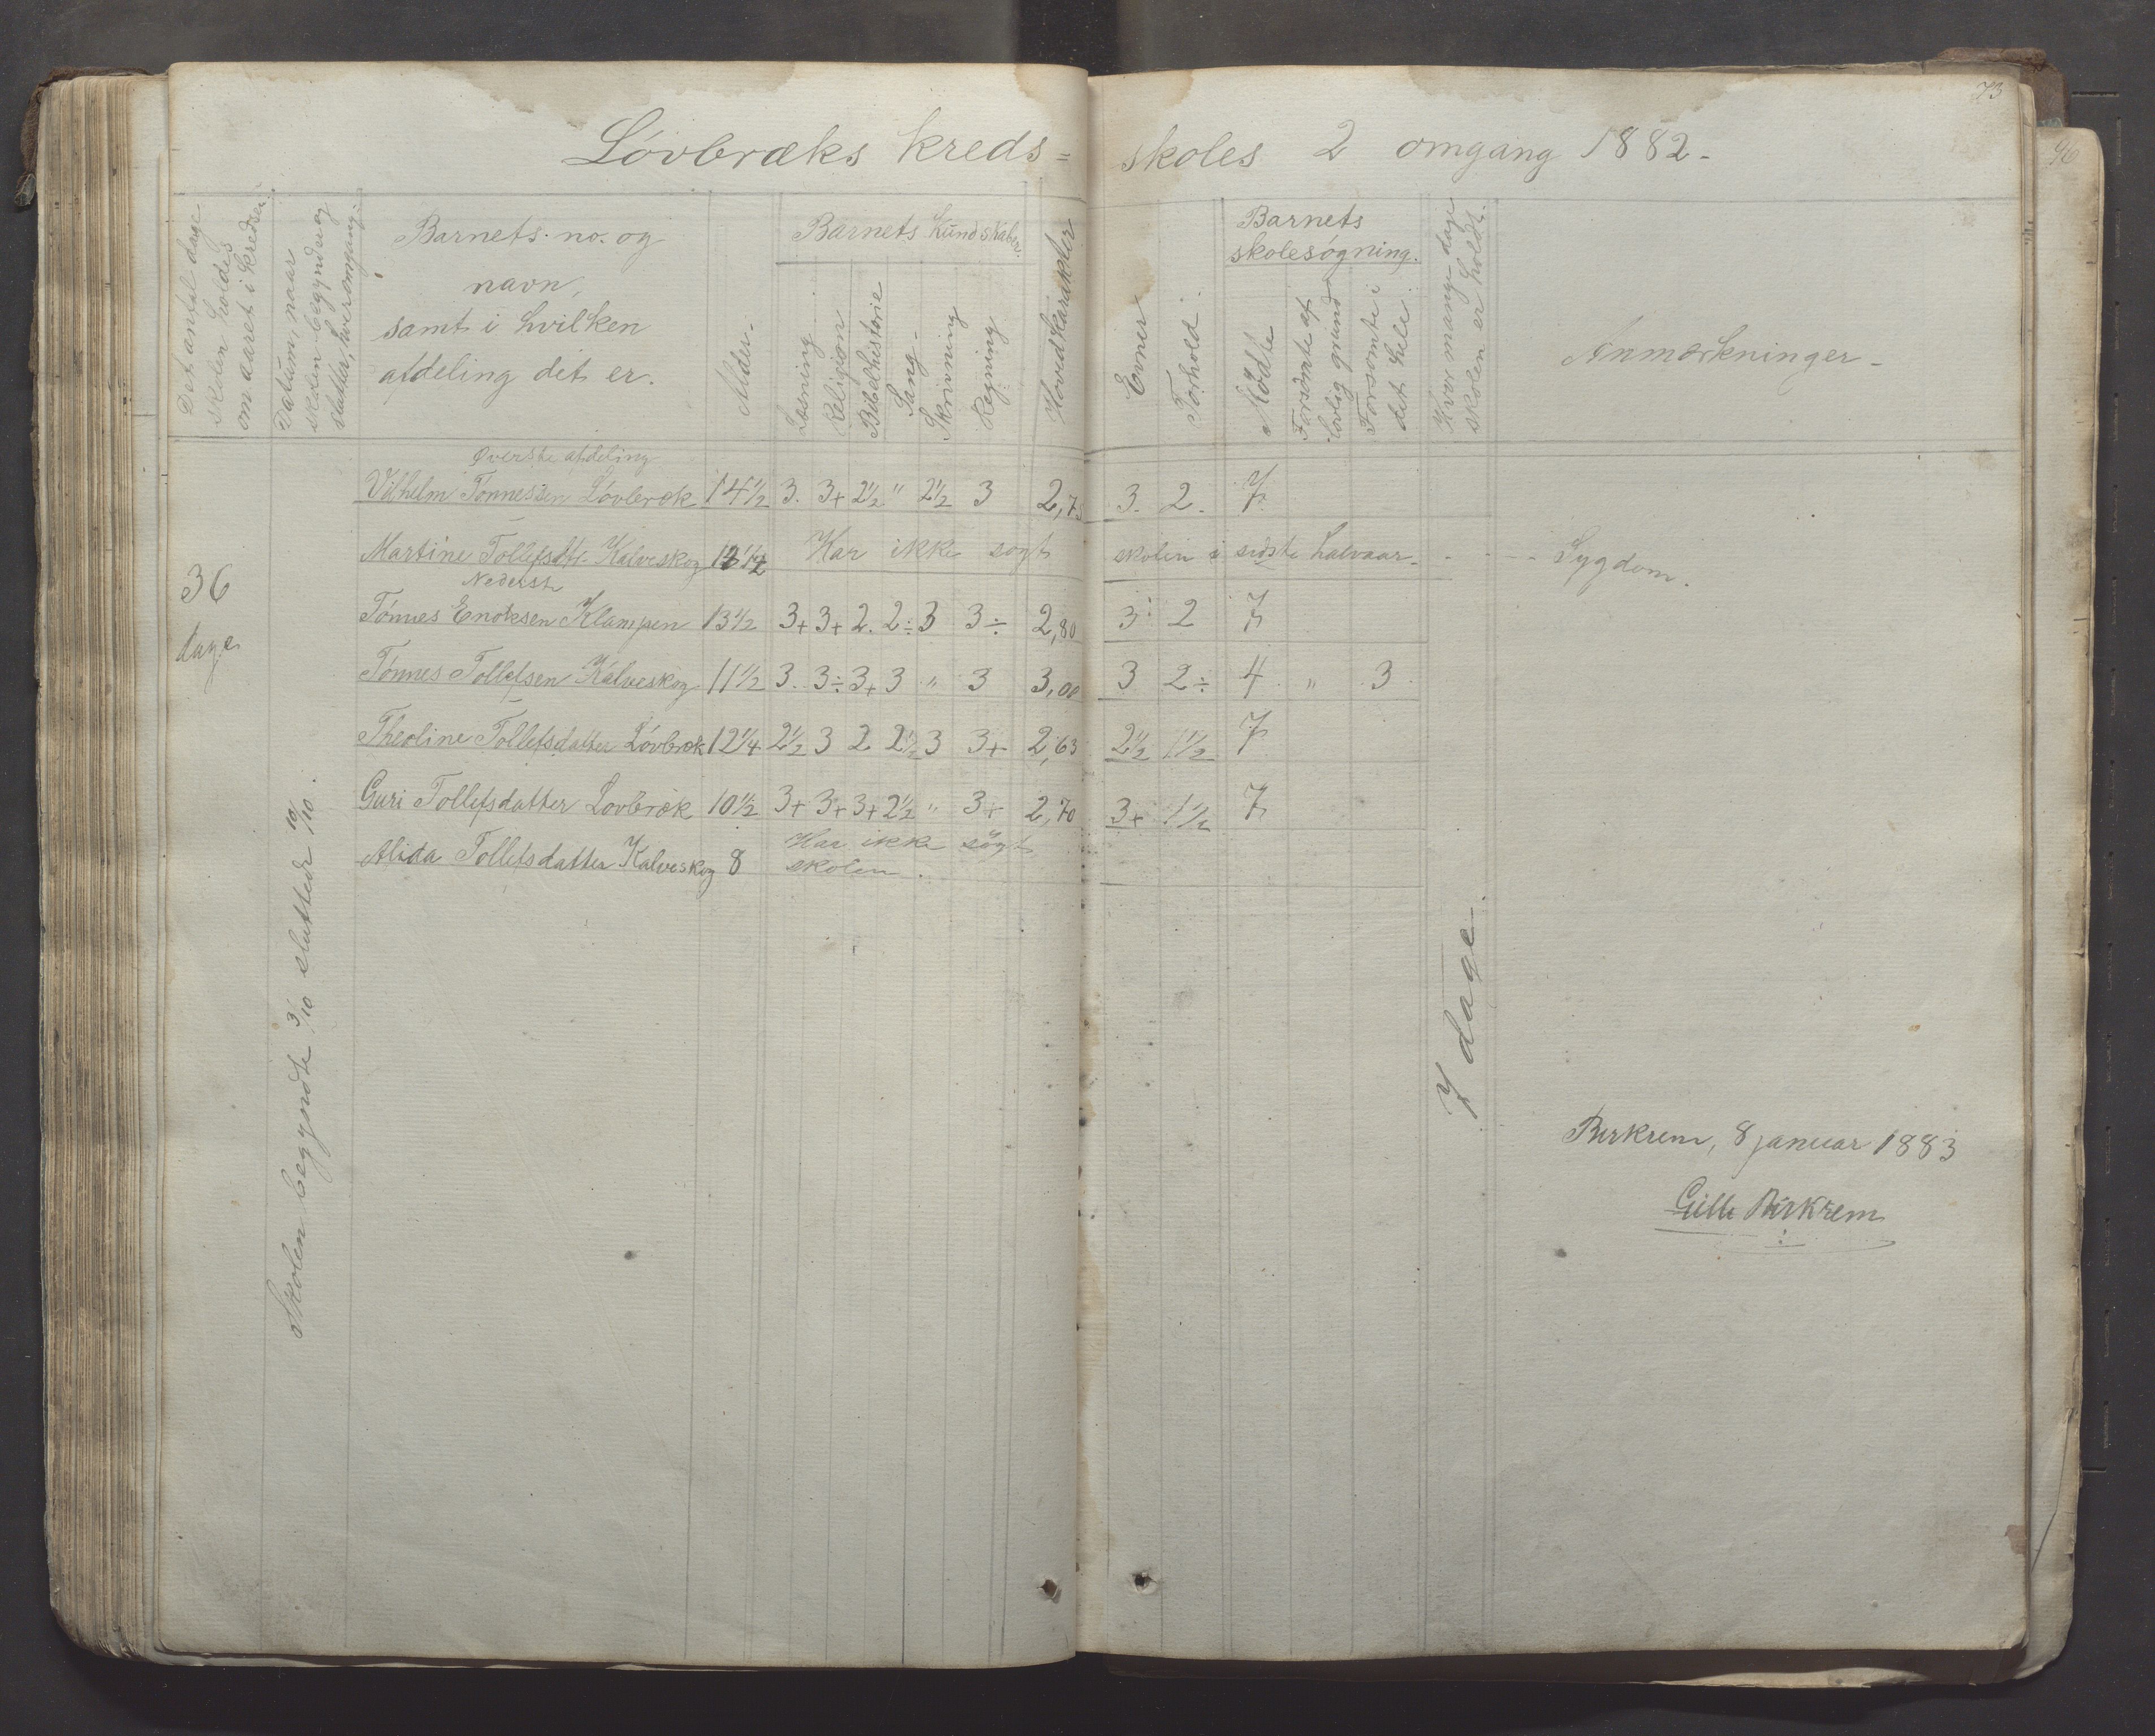 73
96
Løvbræks kreds=
skoles 2 omgang 1882-
Det antal dage
skolen holdes
om aaret i kredsen.
Datum, naar
skolen begyndes og
slutter, hver omgang.
Barnets no. og
navn,
samt i hvilken
afdeling det er.
Alder-
Barnets Kundskaber
Læsning
Religion
Bibelhistorie
Sang-
Skrivning
Regning
Hovedkarakter
Evner
Forhold
Barnets
skolesøgning.
Mødte
Forsømte af
lovlig grund
Forsømte i
det hele.
Hvor mange dage
skolen er holdt.
Anmærkninger-
36
dage
Skolen begyndte 3/10 sluttede 10/10.
Øverste afdeling
Vilhelm Tønnessen Løvbræk 14½ 3. 3+ 2½ " 2½ 3 2,75 3. 2. 7
Martine Tollefsdtr. Kalveskog Har ikke søgt skolen i sidste halvaar- - - - Sygdom.
Nederste
Tønnes Enoksen Klampen 13½ 3+ 3+ 2. 2÷ 3 3÷ 2,80 3 2 7
Tønnes Tollefsen Kalveskog 11½ 3. 3÷ 3+ 3 " 3 3,00 3 2÷ 4 " 3
Theoline Tollefsdatter Løvbræk 12¼ 2½ 3 2 2½ 3 3+ 2,63 2½ 1½ 7
Guri Tollefsdatter Løvbræk 10½ 3+ 3+ 3+ 2½ " 3+ 2,70 3+ 1½ 7
Alida Tollefsdatter Kalveskog 8 Har ikke søgt
skolen.
7 dage.
Birkrem, 8 januar 1883
Birkrem